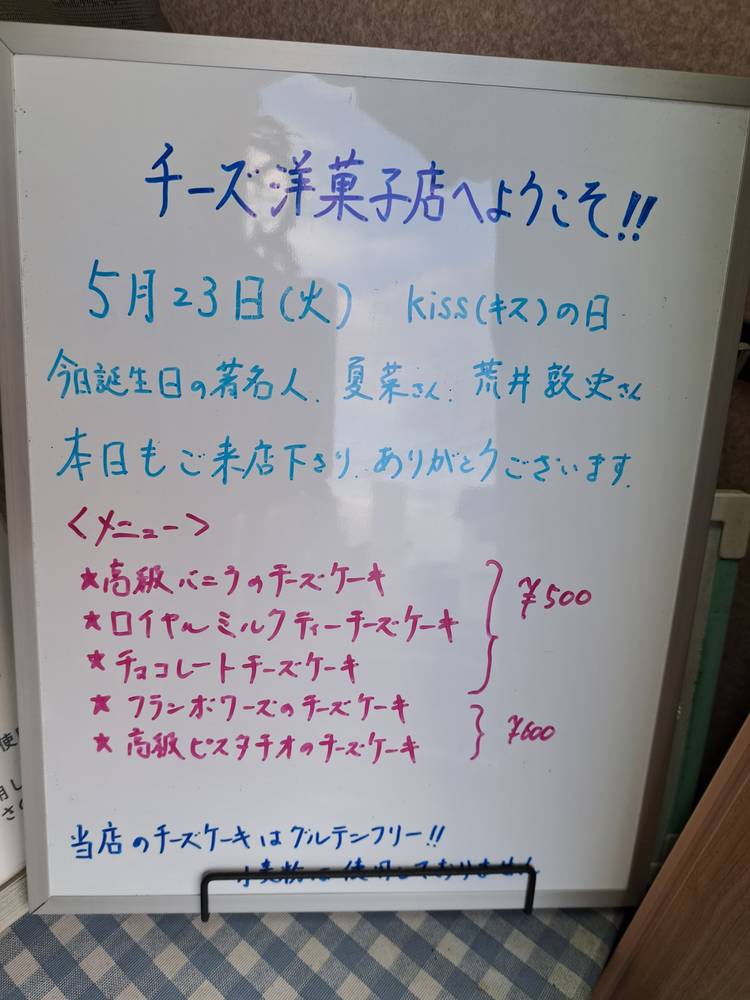 チーズ洋菓子店へようこそ!!
5月23日(火) kiss(キス)の日
今日誕生日の著名人. 夏菜さん. 荒井敦史さん
本日もご来店下さり. ありがとうございます.
<メニュー>
★高級バニラのチーズケーキ
★ロイヤルミルクティーチーズケーキ
★チョコレートチーズケーキ
¥500
★フランボワーズのチーズケーキ
★高級ピスタチオのチーズケーキ
¥600
当店のチーズケーキはグルテンフリー!!
小麦粉は使用しておりません